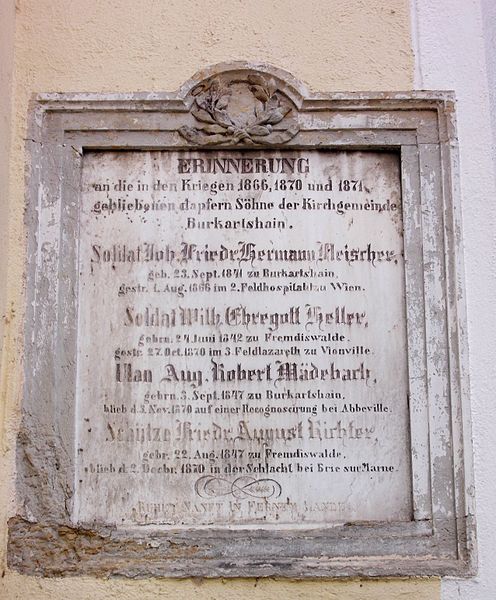 ERINNERUNG
an die in den Kriegen 1866, 1870 und 1871
gebliebenen dapfern Söhne der Kirchgemeinde
Burkartshain.
Soldat Joh. Friedr. Hermann Fleischer,
geb. 23. Sept. 1841 zu Burkartshain,
gestr. 1. Aug. 1866 im 2. Feldhospital zu Wien.
Soldat Wilh. Ehregott Heller,
gebrn. 24 Juni 1842 zu Fremdiswalde.
gestr. 27. Oct. 1870 im 3 Feldlazareth zu Vionville.
Ulan Aug. Robert Mädebach,
gebrn. 3. Sept. 1847 zu Burkartshain,
blieb d. 3. Nov. 1870 auf einer Recognoscirung bei Abbeville.
Schütze Friedr. August Richter,
gebr. 22. Aug. 1847 zu Fremdiswalde,
blieb d. 2. Decbr. 1870 in der Schlacht bei Brie sur Marne.
RUHET SANFT IN FERNEM LANDE